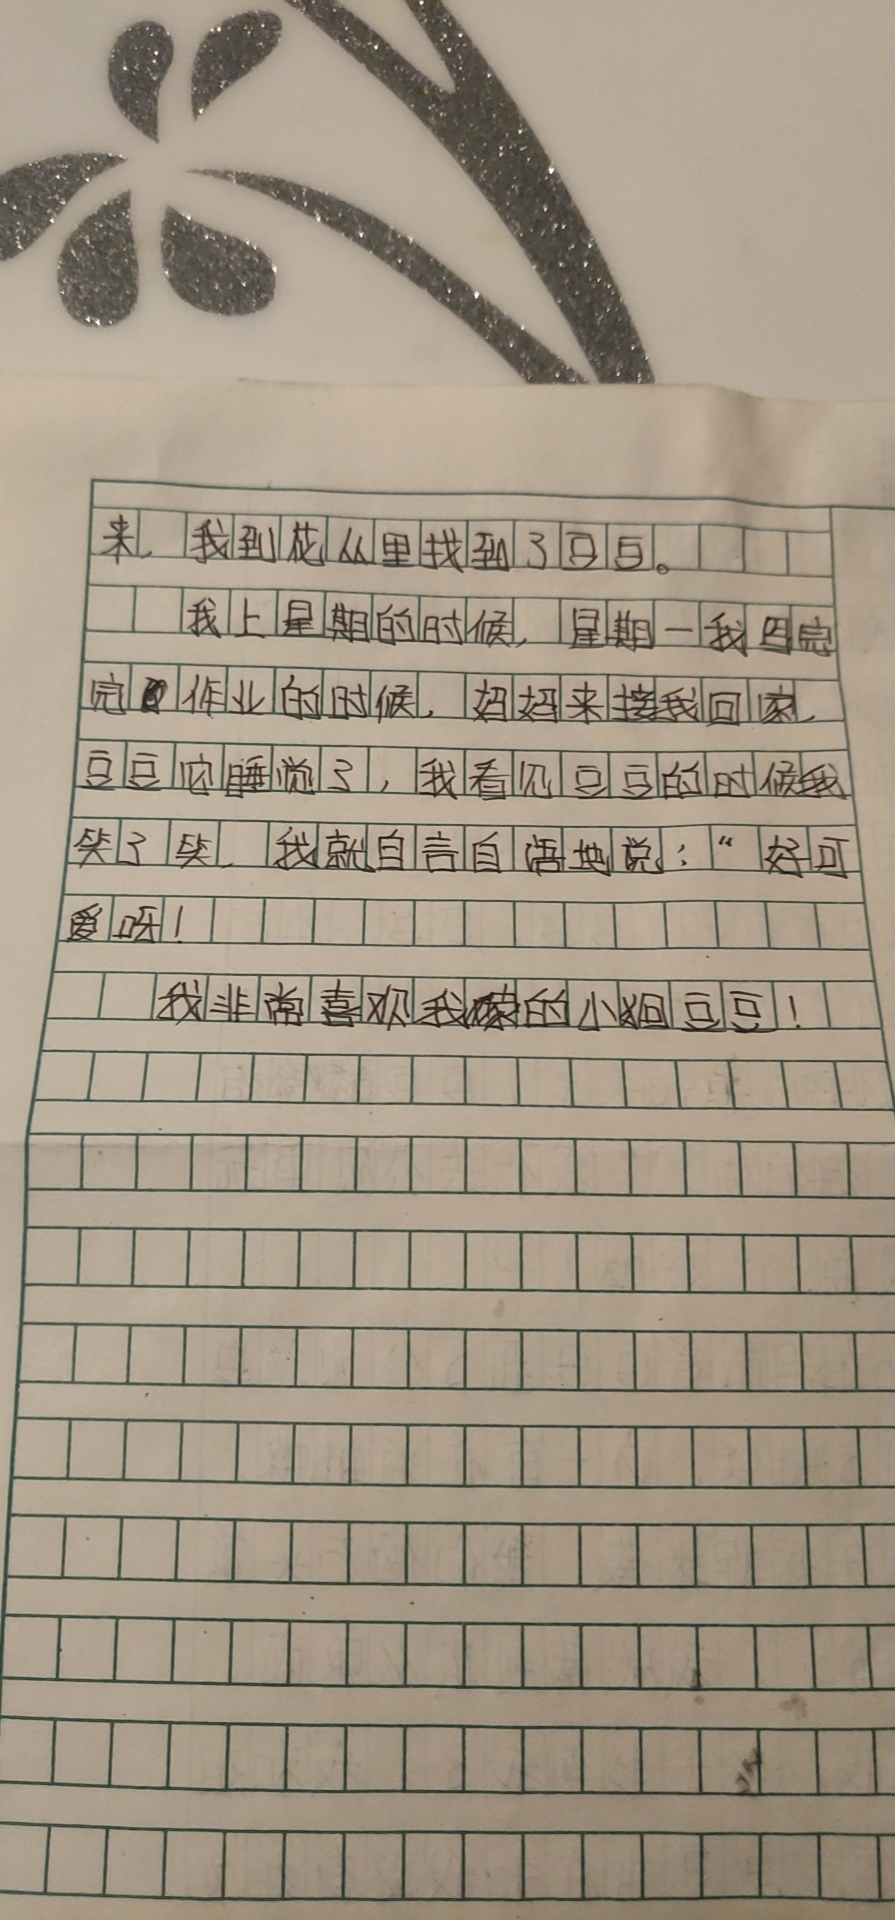 来，我到花从里找到了豆豆。
我上星期的时候，星期一我写完
完作业的时候，妈妈来接我回家，
豆豆它睡觉了，我看见豆豆的时候我
笑了笑，我就自言自语地说：“好可
爱呀！
我非常喜欢我家的小狗豆豆！